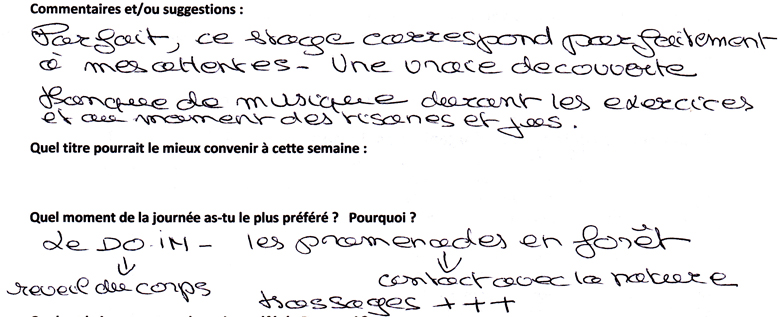 Commentaires et/ou suggestions :
Parfait, ce stage correspond parfaitement
à mes attentes - Une vraie decouverte
Manque de musique durant les exercices
et au moment des tisanes et jus.
Quel titre pourrait le mieux convenir à cette semaine :
Quel moment de la journée as-tu le plus préféré ? Pourquoi ?
Le DO.iN - les promenades en forêt
↓ ↓
reveil du corps contact avec la nature
Massages +++